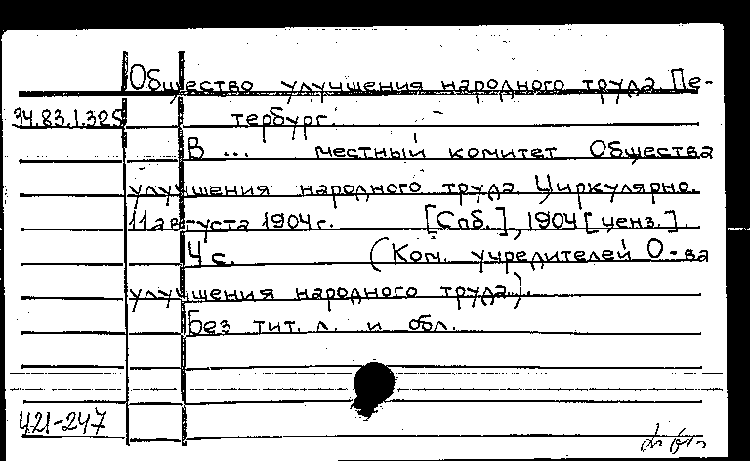 Общество улучшения народного труда. Пе-
34.83.1.325 тербург.
В ... местный комитет Общества
улучшения народного труда. Циркулярно.
11 августа 1904 г. [Спб.], 1904 [ценз.].
4 с. (Ком. учредителей О-ва
улучшения народного труда).
Без тит. л. и обл.
421-247